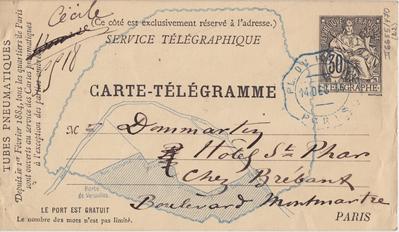 Cécile
(Ce côté est exclusivement réservé à l'adresse.)
SERVICE TÉLÉGRAPHIQUE
TUBES PNEUMATIQUES
Depuis le 1er Février 1884, tous les quartiers de Paris
sont ouverts au service des Cartes pneumatiques
à l'exception des parties
30
TÉLÉGRAPHE
PL. DU
14 DEC
PARIS
CARTE-TÉLÉGRAMME
M Dommartin
Hotel St Phar
Chez Brébant
Boulevard Montmartre
Porte
de Versailles
LE PORT EST GRATUIT
Le nombre des mots n'est pas limité.
PARIS